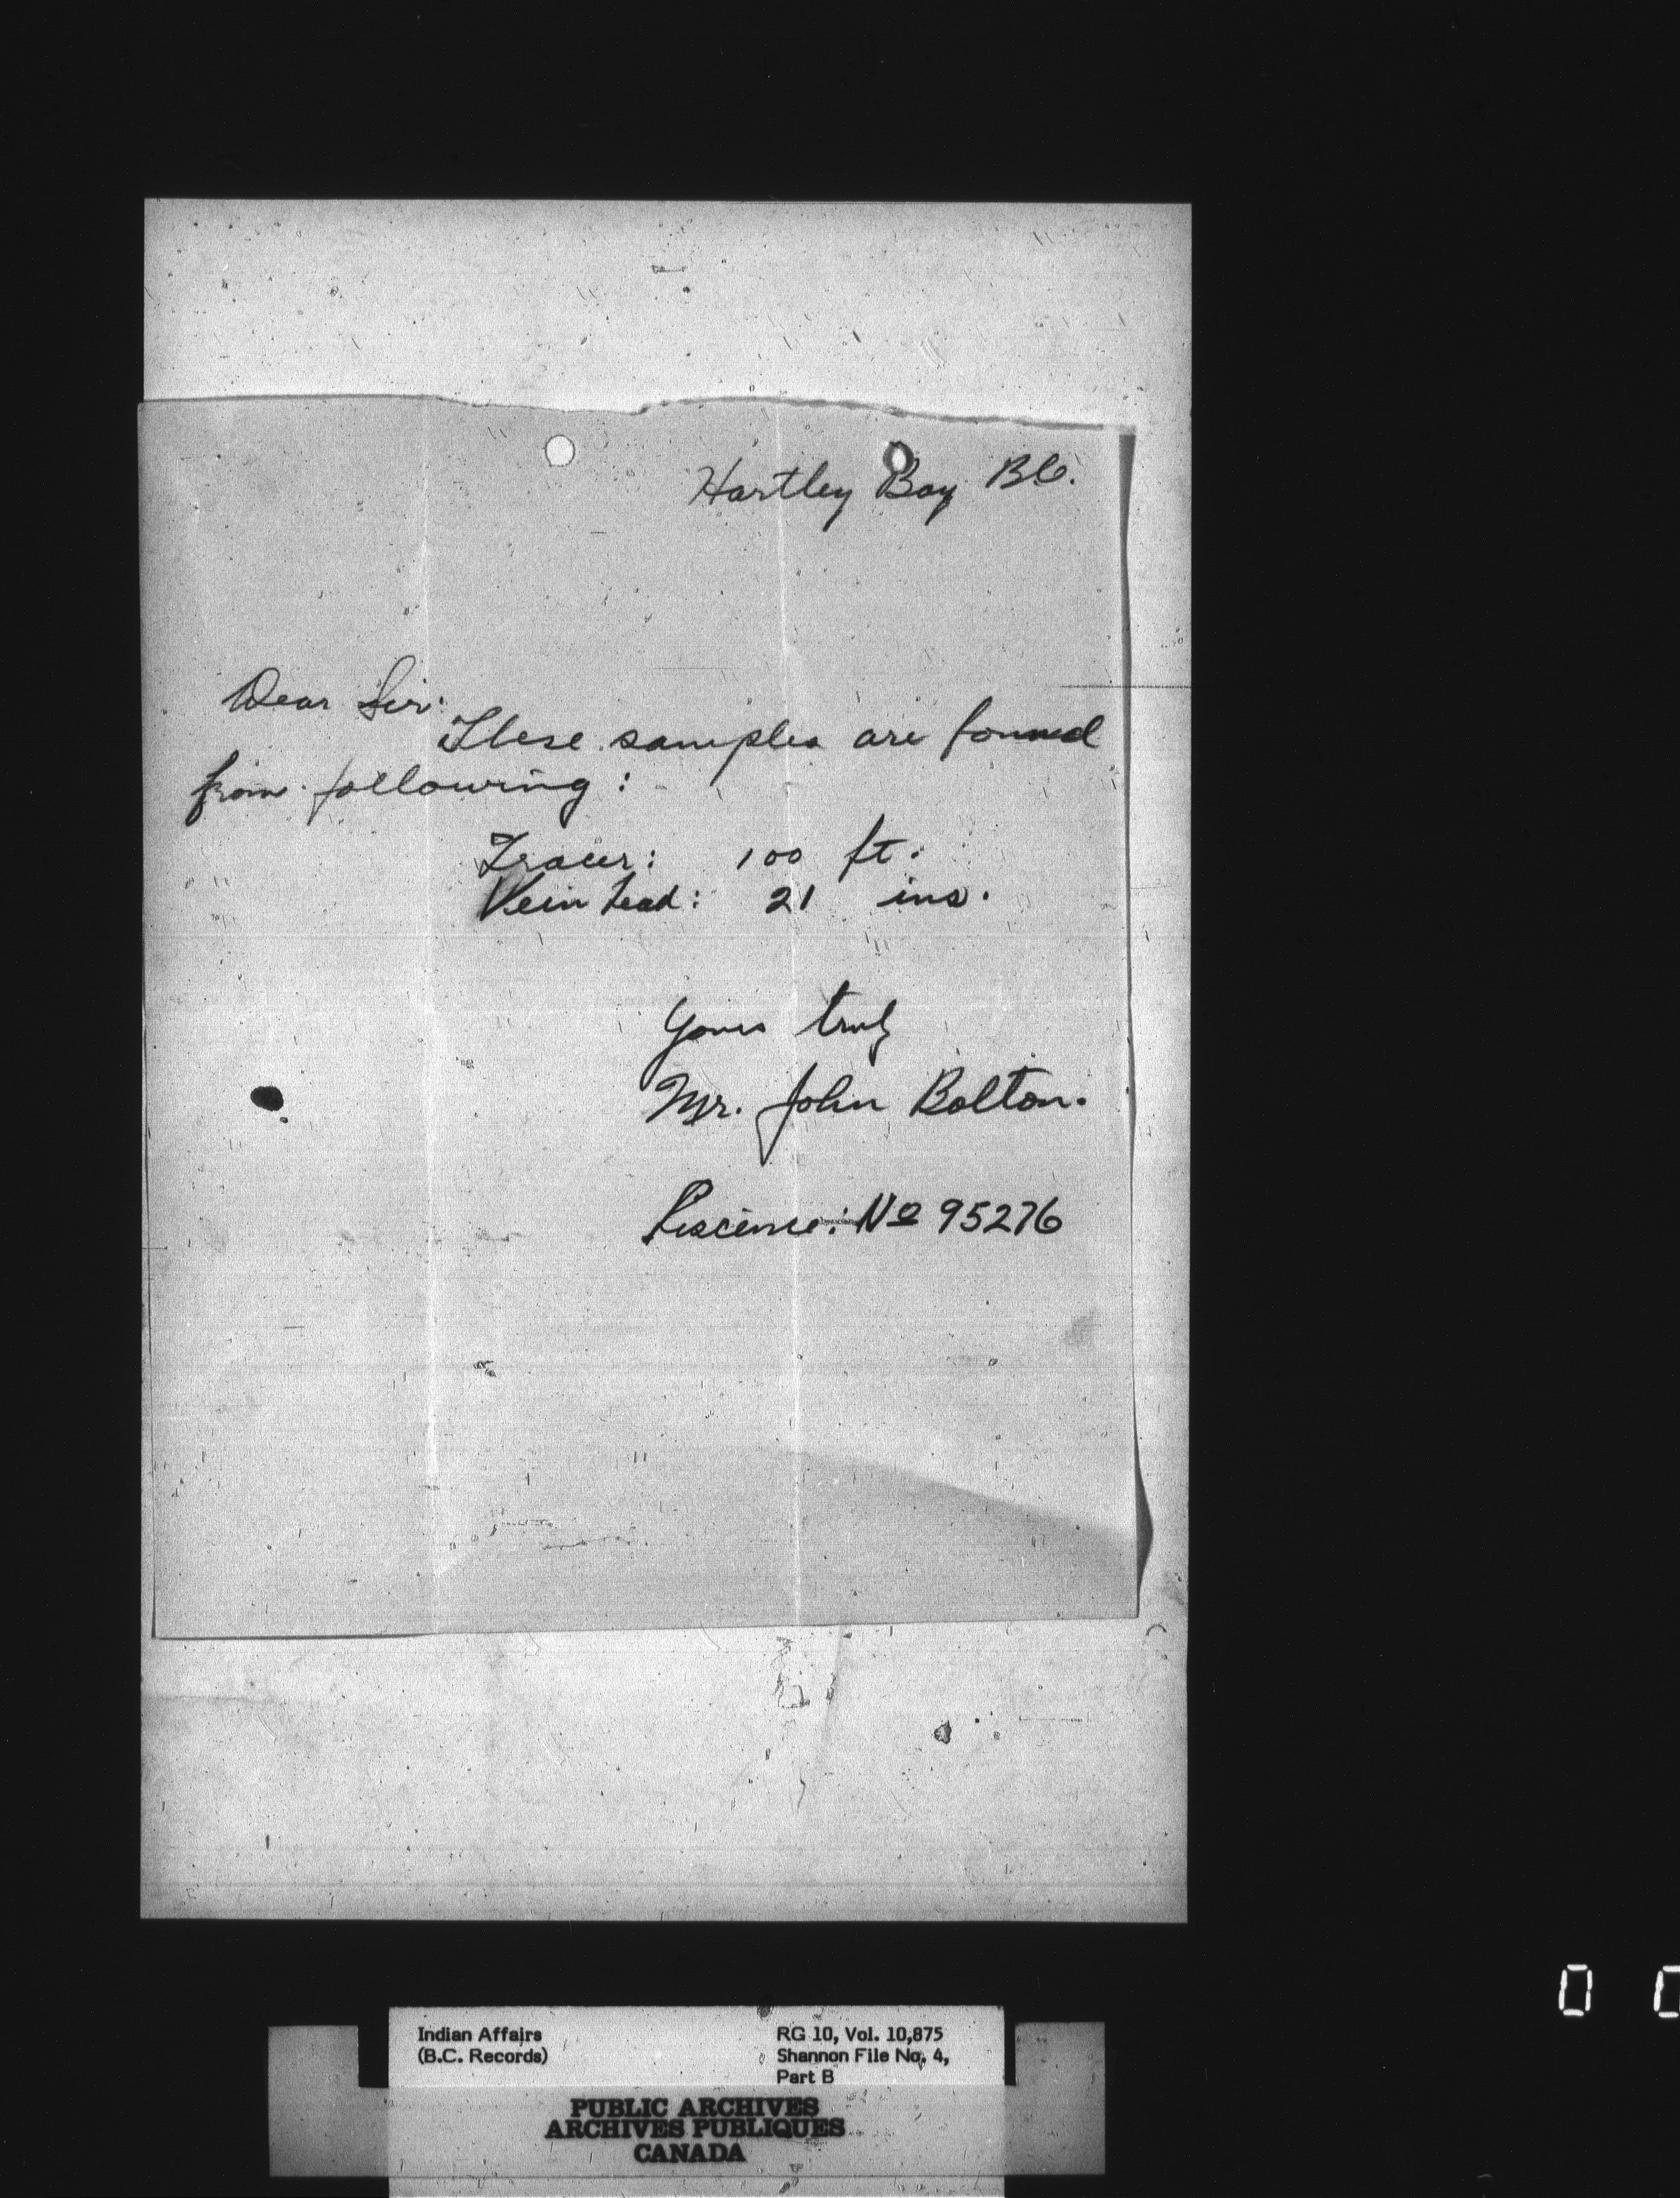 Hartley Bay BC.
Dear Sir:
These samples are found
from following:
Tracer: 100 ft.
Vein Lead: 21 ins.
Yours truly
Mr. John Bolton.
Liscense: No 95276
0 0
Indian Affairs
(B.C. Records)
RG 10, Vol. 10,875
Shannon File No. 4,
Part B
PUBLIC ARCHIVES
ARCHIVES PUBLIQUES
CANADA